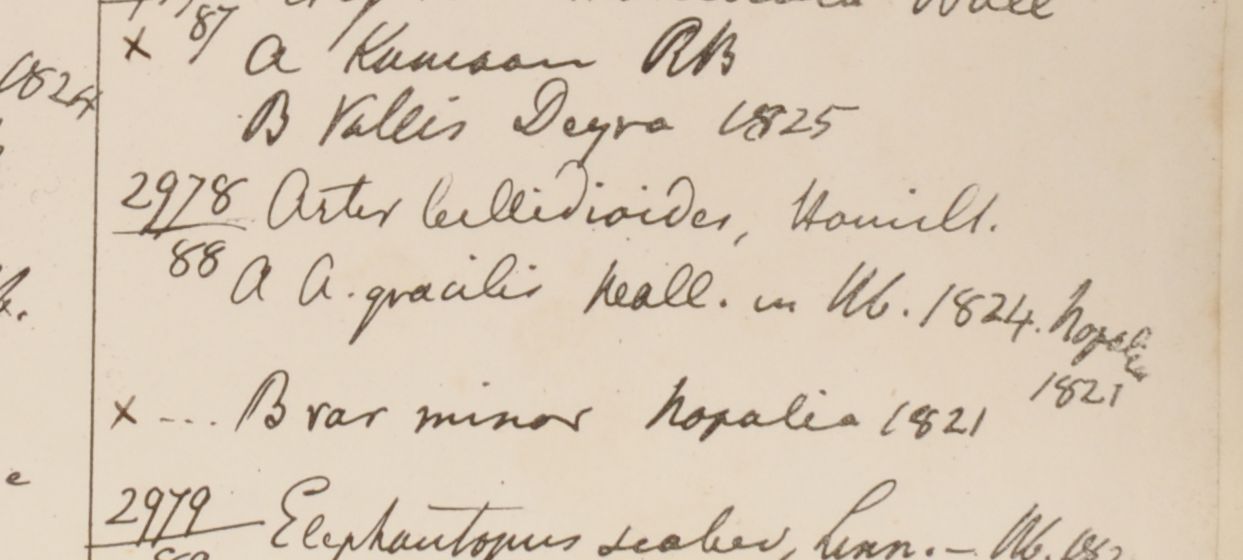 Wall
x 87 A Kamaon RB
1824
B Vallis Deyra 1825
2978 Aster bellidioides, Hamilt.
88 A A. gracilis Wall. in Hb. 1824. Nopalia
1821
x --- B var minor Nopalia 1821
e
2979 Elephantopus scaber, Linn. – Hb. 182